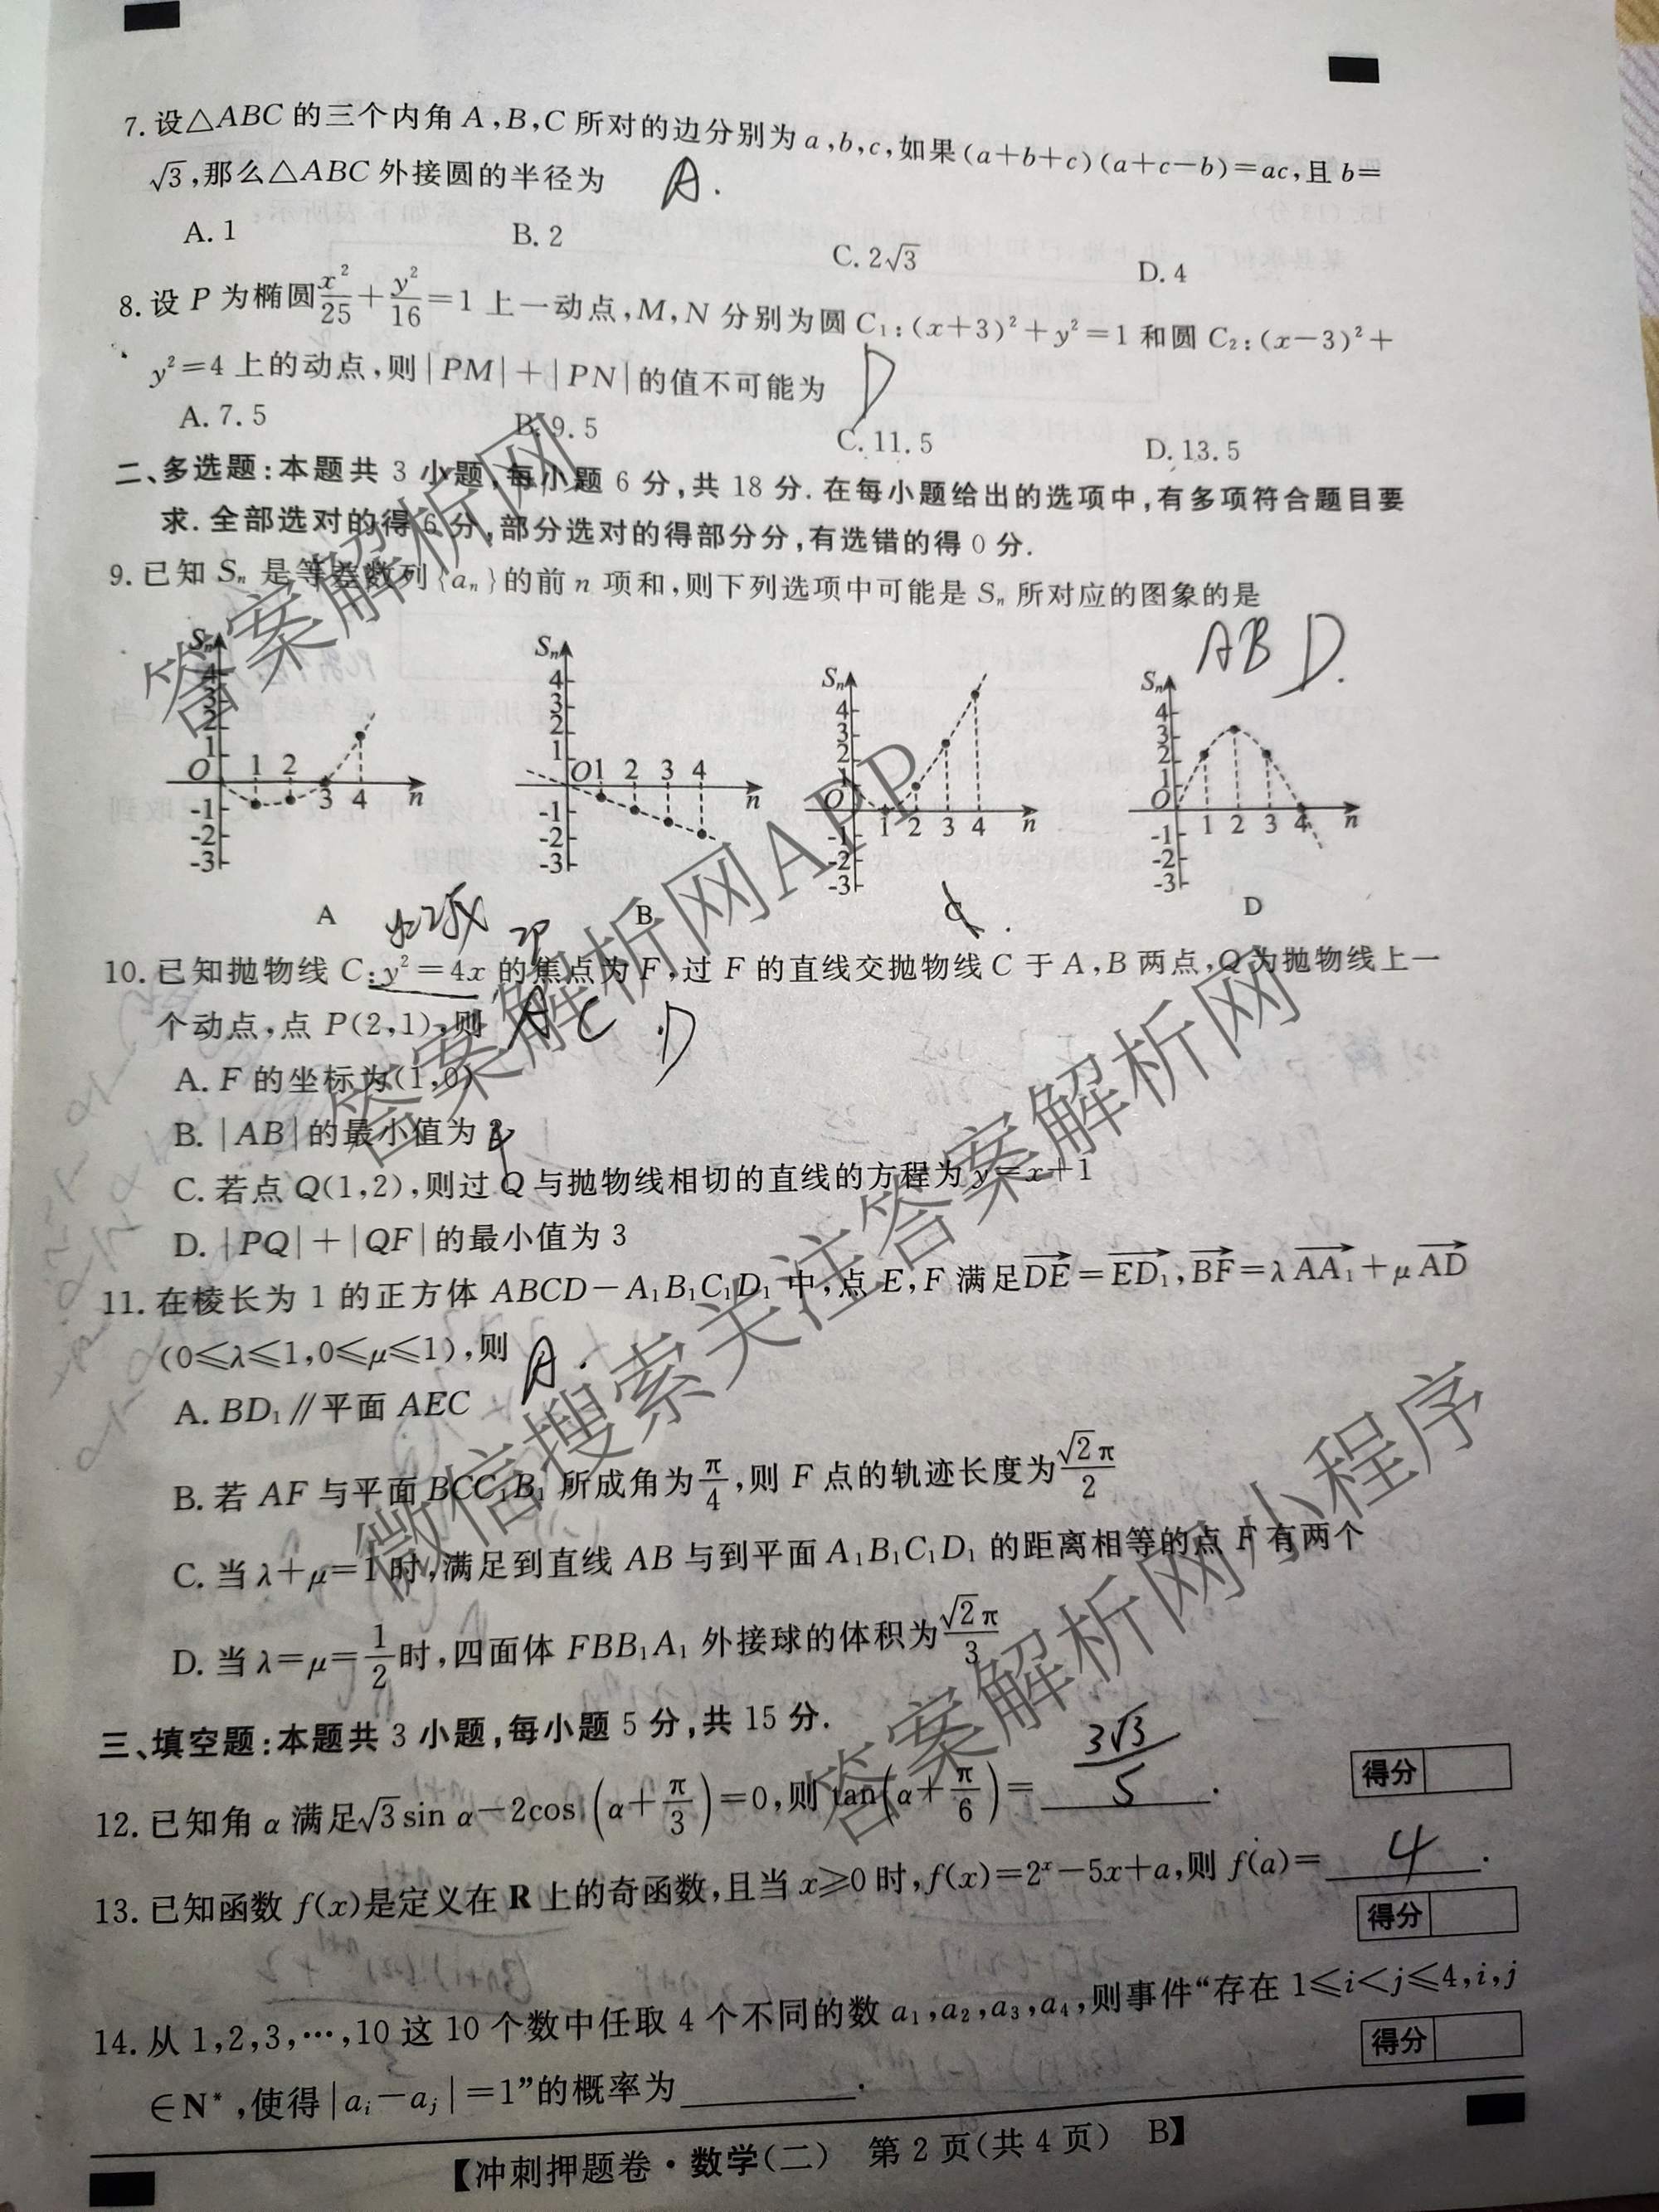 7. 设△ABC 的三个内角 A,B,C 所对的边分别为 a,b,c,如果(a+b+c)(a+c-b)=ac,且 b=
√3,那么△ABC 外接圆的半径为 A.
A. 1 B. 2 C. 2√3 D. 4
8. 设 P 为椭圆x²/25+y²/16=1 上一动点,M,N 分别为圆 C₁:(x+3)²+y²=1 和圆 C₂:(x-3)²+
y²=4 上的动点,则|PM|+|PN|的值不可能为 D
A. 7.5 B. 9.5 C. 11.5 D. 13.5
二、多选题:本题共 3 小题,每小题 6 分,共 18 分. 在每小题给出的选项中,有多项符合题目要
求. 全部选对的得 6 分,部分选对的得部分分,有选错的得 0 分.
9. 已知 Sₙ 是等差数列{aₙ}的前 n 项和,则下列选项中可能是 Sₙ 所对应的图象的是
ABD.
Sₙ 4 3 2 1 O 1 2 3 4 n -1 -2 -3
Sₙ 4 3 2 1 O 1 2 3 4 n -1 -2 -3
Sₙ 4 3 2 1 O 1 2 3 4 n -1 -2 -3
Sₙ 4 3 2 1 O 1 2 3 4 n -1 -2 -3
A B C D
10. 已知抛物线 C:y²=4x 的焦点为 F,过 F 的直线交抛物线 C 于 A,B 两点,Q 为抛物线上一
个动点,点 P(2,1),则 A C D
A. F 的坐标为(1,0)
B. |AB|的最小值为
C. 若点 Q(1,2),则过 Q 与抛物线相切的直线的方程为 y=x+1
D. |PQ|+|QF|的最小值为 3
11. 在棱长为 1 的正方体 ABCD-A₁B₁C₁D₁ 中,点 E,F 满足DE=ED₁,BF=λAA₁+μAD
(0≤λ≤1,0≤μ≤1),则 A.
A. BD₁∥平面 AEC
B. 若 AF 与平面 BCC₁B₁ 所成角为π/4,则 F 点的轨迹长度为√2π/2
C. 当 λ+μ=1 时,满足到直线 AB 与到平面 A₁B₁C₁D₁ 的距离相等的点 F 有两个
D. 当 λ=μ=1/2时,四面体 FBB₁A₁ 外接球的体积为√2π/3
三、填空题:本题共 3 小题,每小题 5 分,共 15 分.
12. 已知角 α 满足√3sin α-2cos(α+π/3)=0,则 tan(α+π/6)= 3√3/5 .
得分
13. 已知函数 f(x)是定义在 R 上的奇函数,且当 x≥0 时,f(x)=2ˣ-5x+a,则 f(a)= 4 .
得分
14. 从 1,2,3,…,10 这 10 个数中任取 4 个不同的数 a₁,a₂,a₃,a₄,则事件“存在 1≤i<j≤4,i,j
得分
∈N*,使得|aᵢ-aⱼ|=1”的概率为________.
【冲刺押题卷·数学(二) 第 2 页(共 4 页) B】
答案解析网
答案解析网APP
微信搜索关注答案解析网
答案解析网小程序